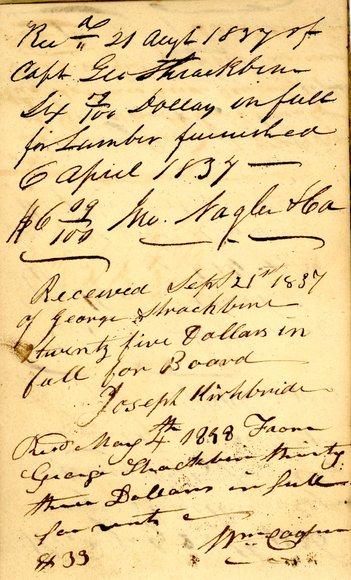 Rec'd 21 Augt 1837 of
Capt Geo Strackbine
Six 9/100 Dollars in full
for Lumber furnished
6 April 1837
$6 09/100 Jno. Nagler & Co
Received Sept 21st 1837
of George Strackbine
twenty five Dollars in
full for Board
Joseph Kirkbride
Recd May 4th 1838 From
George Strackbine thirty
three Dollars in full
for rent
$33 Wm